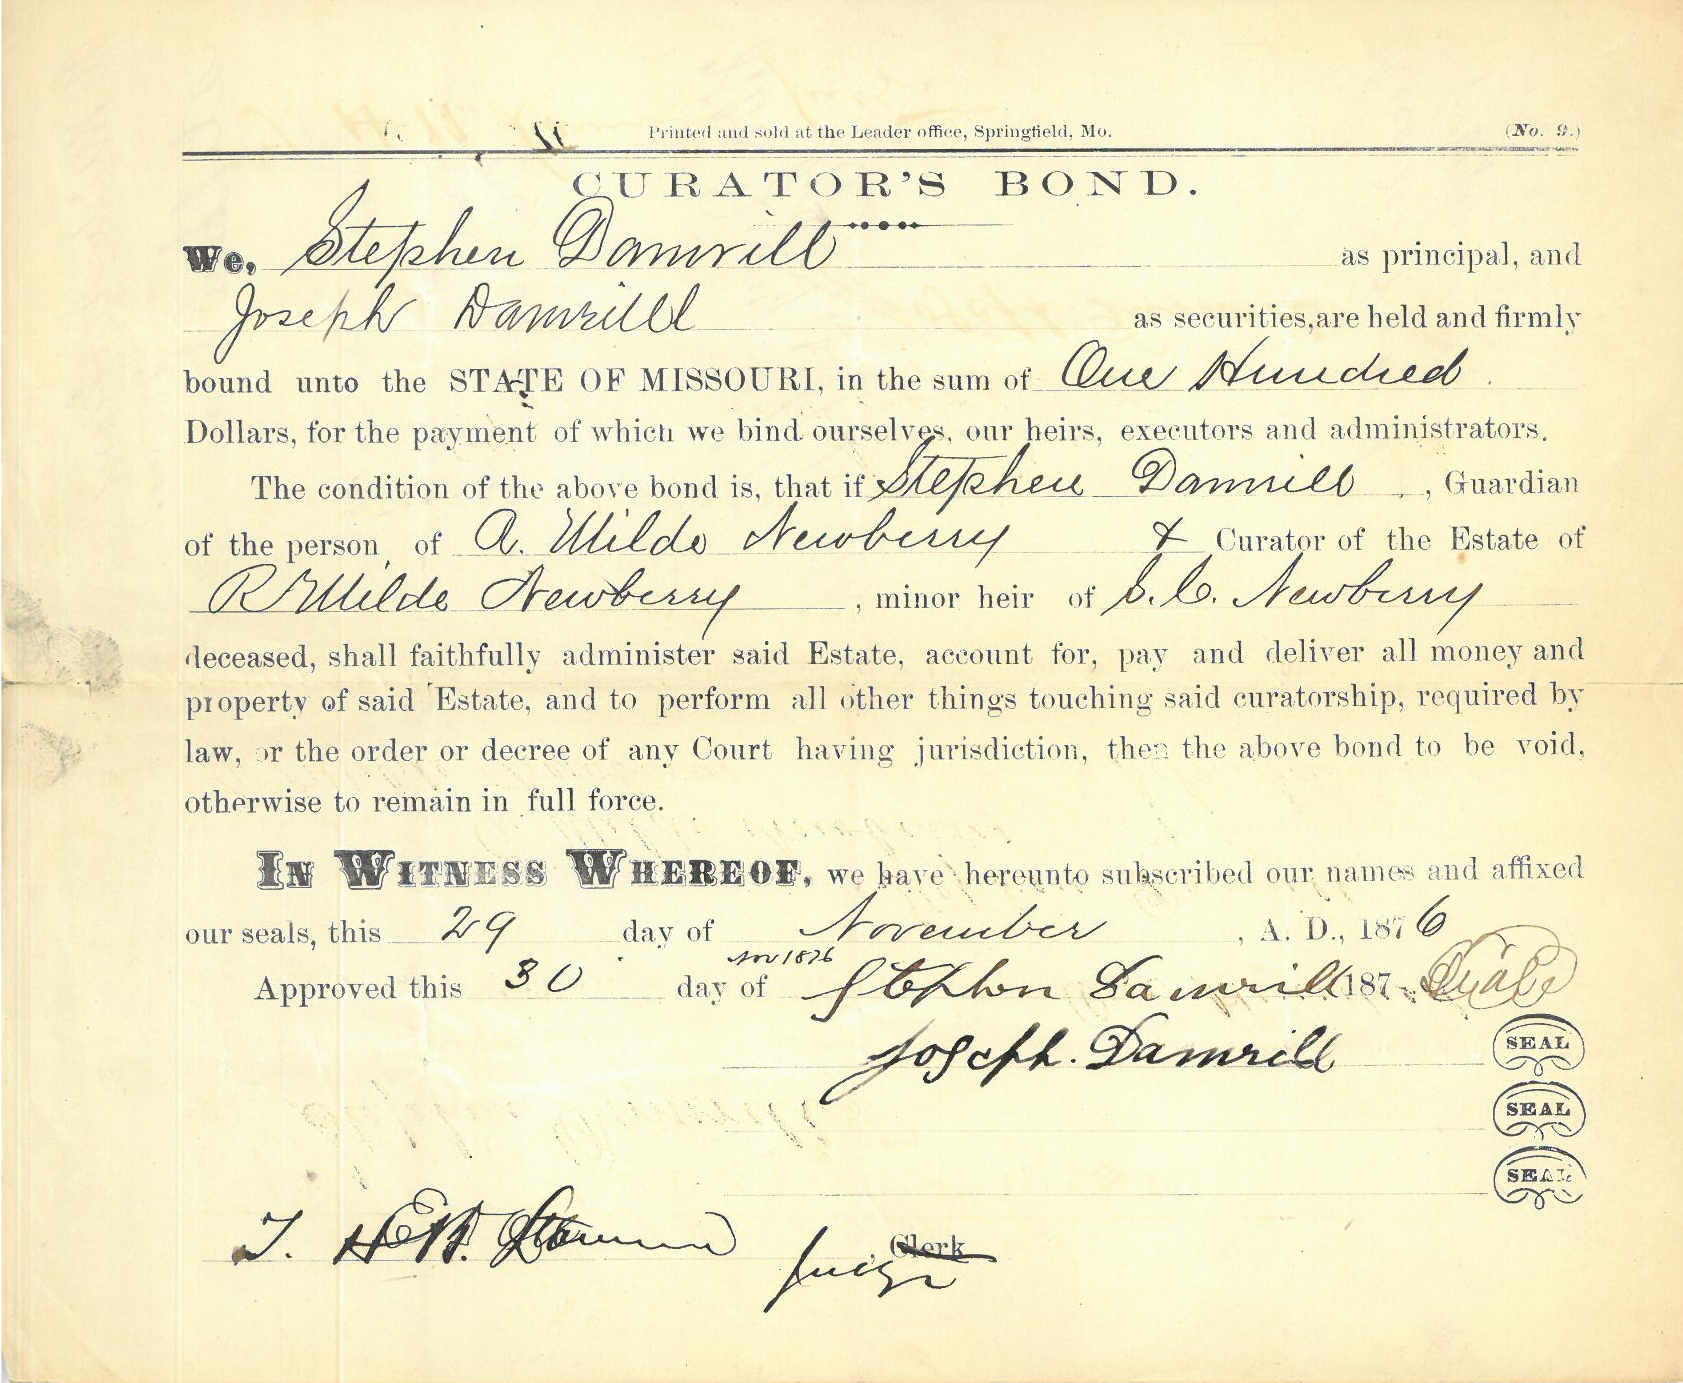 Printed and sold at the Leader office, Springfield, Mo. (No. 9.)
CURATOR'S BOND.
We, Stephen Damrill as principal, and
Joseph Damrill as securities, are held and firmly
bound unto the STATE OF MISSOURI, in the sum of One Hundred
Dollars, for the payment of which we bind ourselves, our heirs, executors and administrators.
The condition of the above bond is, that if Stephen Damrill, Guardian
of the person of A. Wilde Newberry & Curator of the Estate of
R Wilde Newberry, minor heir of S. C. Newberry
deceased, shall faithfully administer said Estate, account for, pay and deliver all money and
property of said Estate, and to perform all other things touching said curatorship, required by
law, or the order or decree of any Court having jurisdiction, then the above bond to be void,
otherwise to remain in full force.
IN WITNESS WHEREOF, we have hereunto subscribed our names and affixed
our seals, this 29 day of November, A. D., 1876
Nov 1876
Approved this 30 day of Stephen Damrill 187 Seal
Joseph. Damrill SEAL
SEAL
SEAL
Clerk
Judge